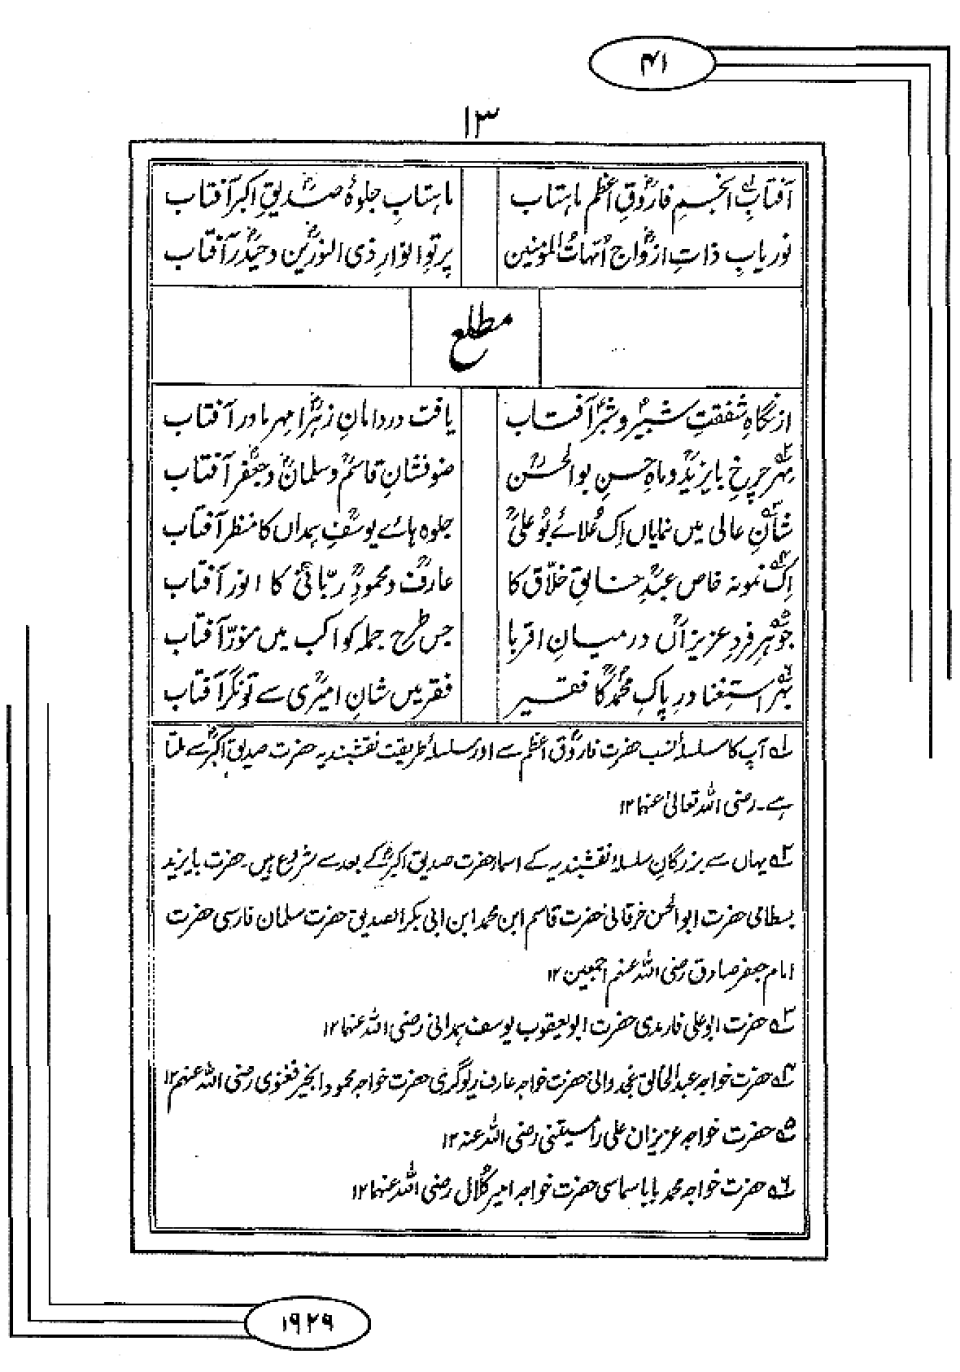 ۴۱
۱۳
آفتابِ انجمِ فاروقِ اعظم ماہتاب ماہتابِ جلوۂ صدیقِ اکبر آفتاب
نور یابِ ذاتِ ازواج امہات المومنین پرتوِ انوارِ ذی النورین و حیدر آفتاب
مطلع
از نگاہِ شفقتِ شبیر و شبر آفتاب یافت در دامانِ زہرا مہرِ مادر آفتاب
۲؎ مہرِ چرخِ بایزید و ماہِ حسنِ بوالحسن ضوفشانِ قاسم و سلمان و جعفر آفتاب
۳؎ شانِ عالی میں نمایاں اِک عُلائے بُو علی جلوہ ہائے یوسفِ ہمداں کا منظر آفتاب
۴؎ اِک نمونہ خاص عبدِ خالقِ خلّاق کا عارف و محمودِ ربّانی کا انور آفتاب
۵؎ جوہرِ فردِ عزیزاں درمیانِ اقربا جس طرح جملہ کواکب میں منوّر آفتاب
۶؎ بہرِ استغنا درِ پاکِ محمد کا فقیر فقر میں شانِ امیری سے تونگر آفتاب
۱؎ آپ کا سلسلۂ نسب حضرت فاروق اعظم سے اور سلسلۂ طریقت نقشبندیہ حضرت صدیق اکبر سے ملتا
ہے۔ رضی اللہ تعالیٰ عنہما ۱۲
۲؎ یہاں سے بزرگانِ سلسلۂ نقشبندیہ کے اسماء حضرت صدیق اکبر کے بعد سے شروع ہیں۔ حضرت بایزید
بسطامی حضرت ابوالحسن خرقانی حضرت قاسم ابن محمد ابن ابی بکر الصدیق حضرت سلمان فارسی حضرت
امام جعفر صادق رضی اللہ عنہم اجمعین ۱۲
۳؎ حضرت ابو علی فارمدی حضرت ابو یعقوب یوسف ہمدانی رضی اللہ عنہما ۱۲
۴؎ حضرت خواجہ عبدالخالق غجدوانی حضرت خواجہ عارف ریوگری حضرت خواجہ محمود الخیر فغنوی رضی اللہ عنہم ۱۲
۵؎ حضرت خواجہ عزیزان علی رامیتنی رضی اللہ عنہ ۱۲
۶؎ حضرت خواجہ محمد بابا سماسی حضرت خواجہ امیر کُلال رضی اللہ عنہما ۱۲
۱۹۲۹